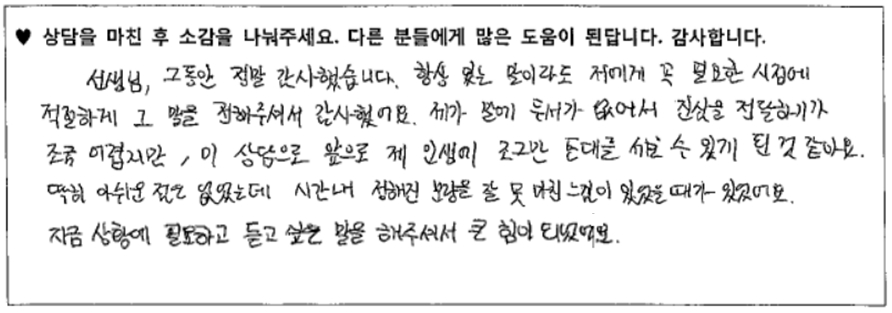 ♥ 상담을 마친 후 소감을 나눠주세요. 다른 분들에게 많은 도움이 된답니다. 감사합니다.
선생님, 그동안 정말 감사했습니다. 항상 맞는 말이라도 저에게 꼭 필요한 시점에
적절하게 그 말을 전해주셔서 감사했어요. 제가 말에 두서가 없어서 진심을 전달하기가
조금 어렵지만, 이 상담으로 앞으로 제 인생에 조그만 돛대를 세울 수 있게 된 것 같아요.
딱히 아쉬운 점은 없었는데 시간내 정해진 분량을 잘 못 마친 느낌이 있었을 때가 있었어요.
지금 상황에 필요하고 듣고 싶은 말을 해주셔서 큰 힘이 되었어요.